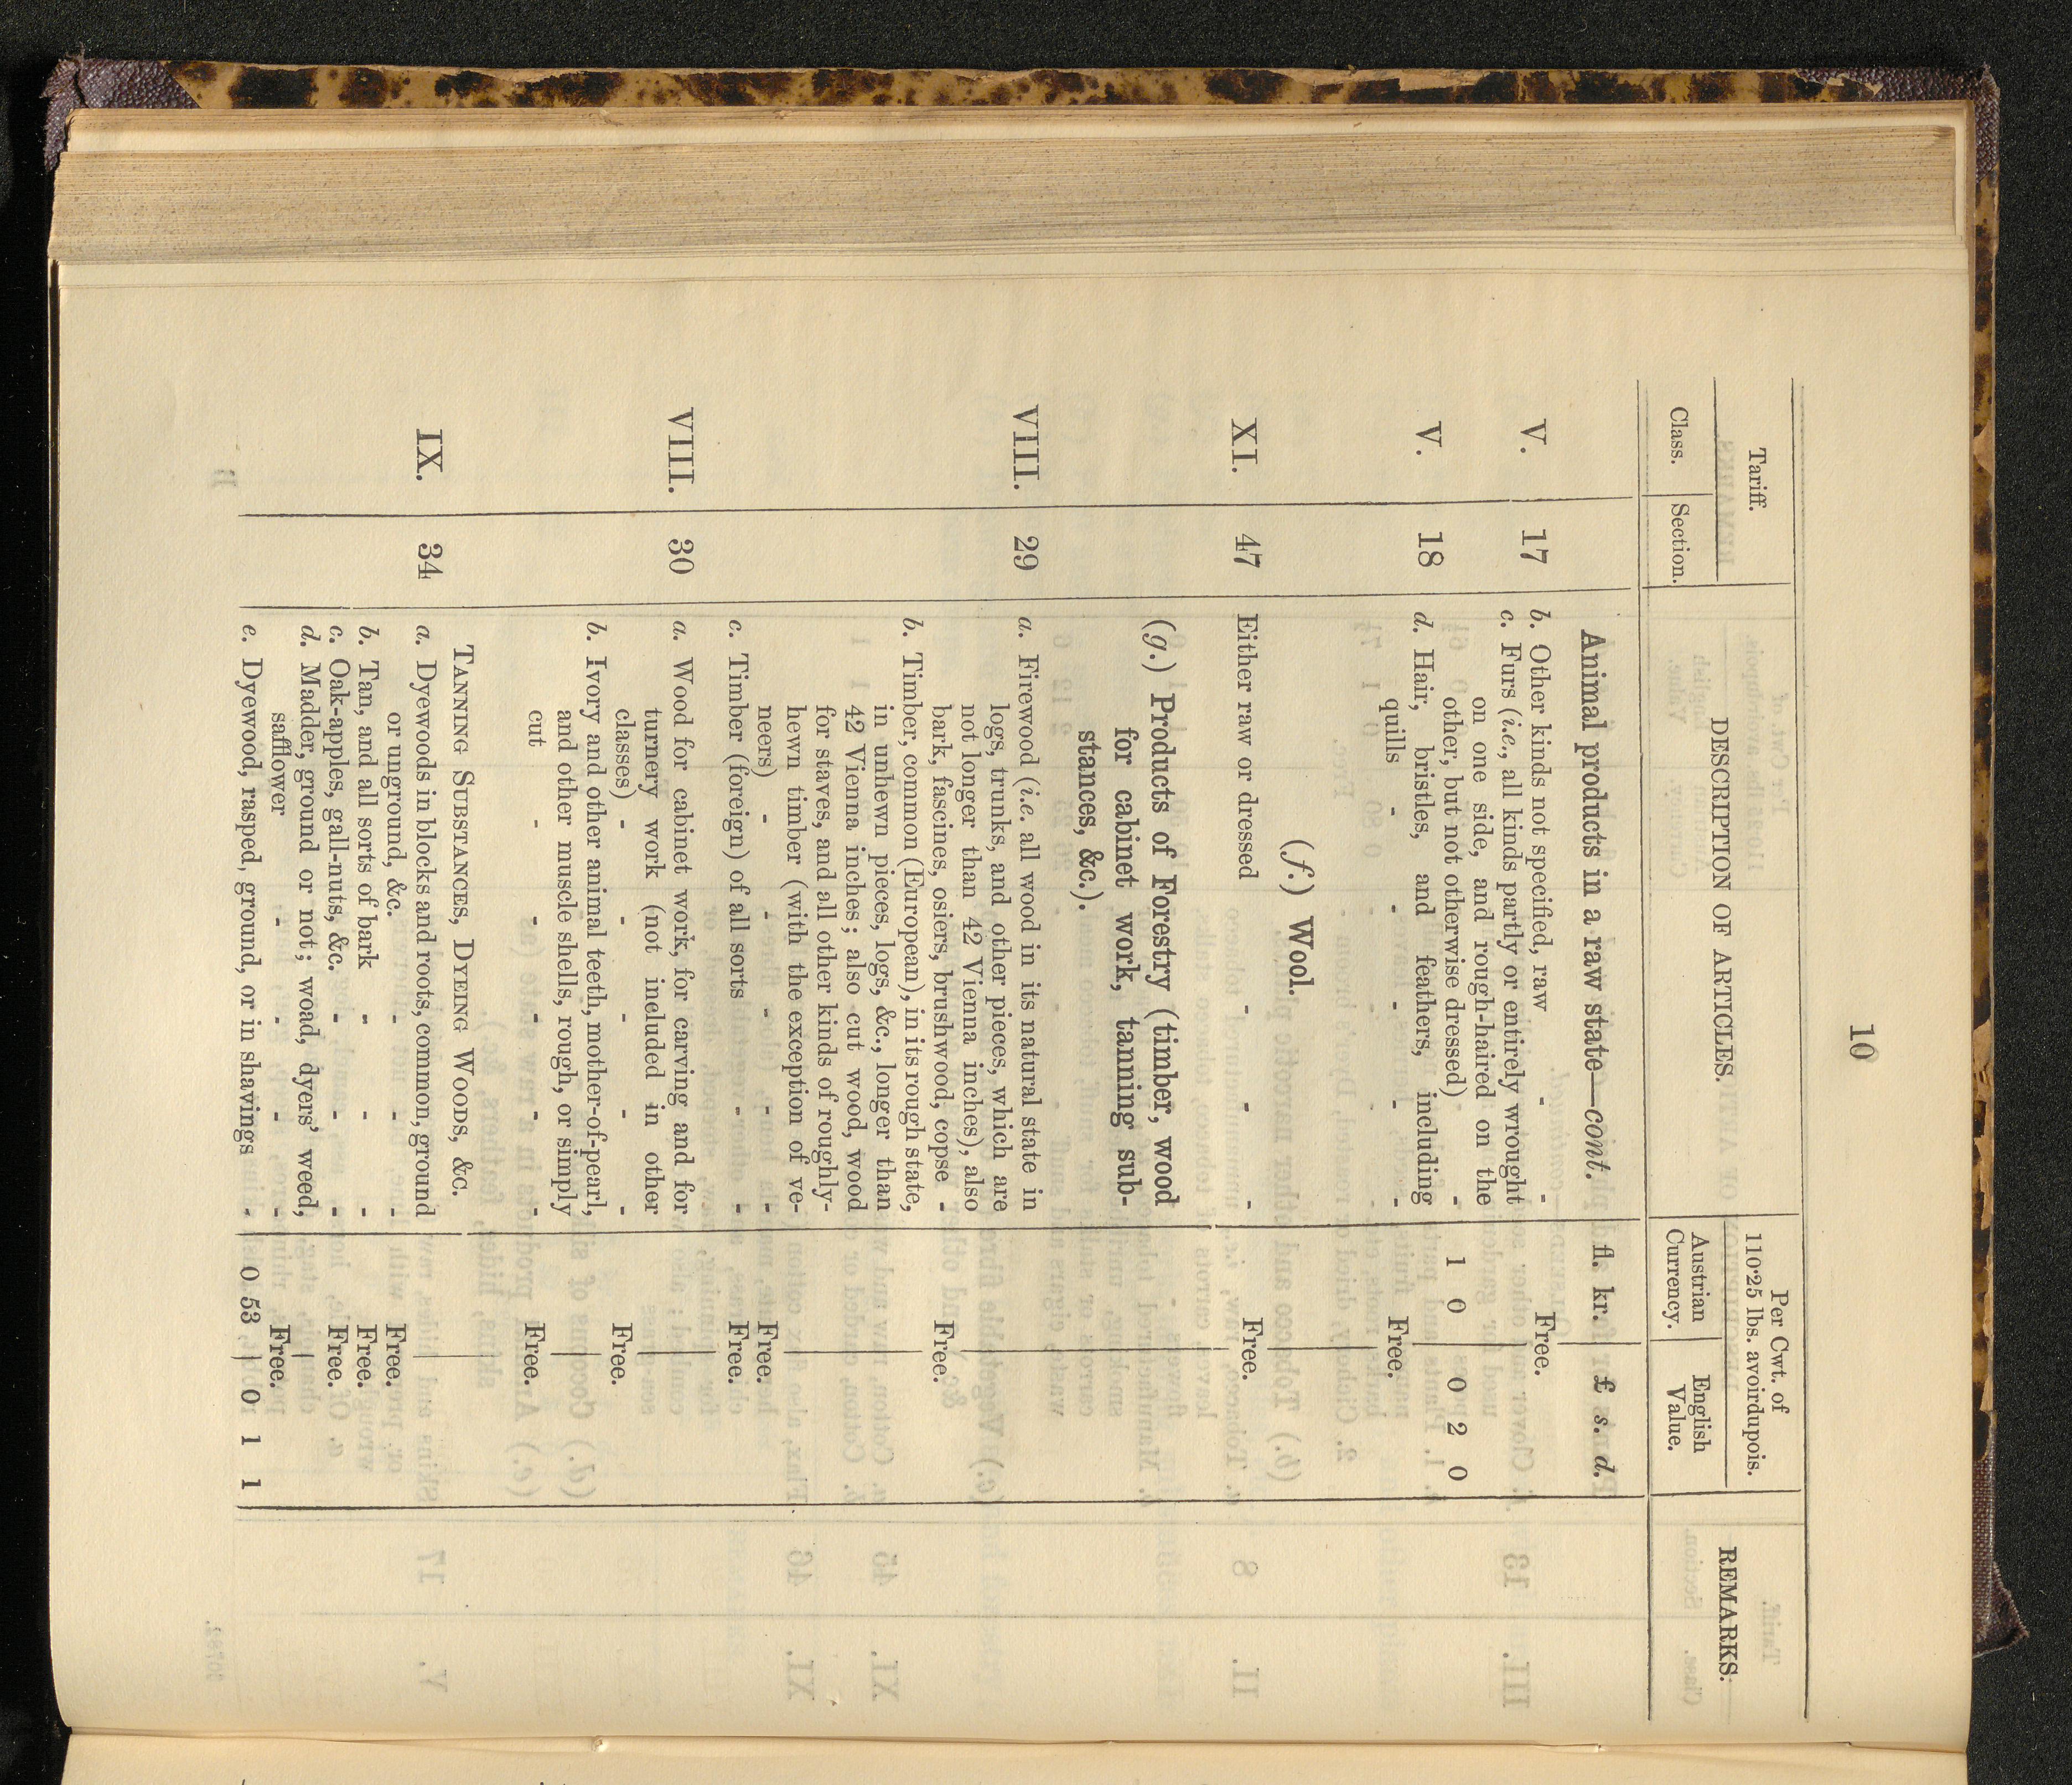 10
Tariff.
Class.
Section.
DESCRIPTION OF ARTICLES.
Per Cwt. of
110·25 lbs. avoirdupois.
Austrian
Currency.
English
Value.
REMARKS.
Animal products in a raw state—cont.
fl. kr.
£ s. d.
V. 17 b. Other kinds not specified, raw - - Free.
c. Furs (i.e., all kinds partly or entirely wrought
on one side, and rough-haired on the
other, but not otherwise dressed) - 1 0 0 2 0
V. 18 d. Hair, bristles, and feathers, including
quills - - - - - Free.
(f.) Wool.
XI. 47 Either raw or dressed - - - Free.
(g.) Products of Forestry (timber, wood
for cabinet work, tanning sub-
stances, &c.).
VIII. 29 a. Firewood (i.e. all wood in its natural state in
logs, trunks, and other pieces, which are
not longer than 42 Vienna inches), also
bark, fascines, osiers, brushwood, copse - Free.
b. Timber, common (European), in its rough state,
in unhewn pieces, logs, &c., longer than
42 Vienna inches; also cut wood, wood
for staves, and all other kinds of roughly-
hewn timber (with the exception of ve-
neers) - - - - - Free.
c. Timber (foreign) of all sorts - - Free.
VIII. 30 a. Wood for cabinet work, for carving and for
turnery work (not included in other
classes) - - - - - Free.
b. Ivory and other animal teeth, mother-of-pearl,
and other muscle shells, rough, or simply
cut - - - - - Free.
TANNING SUBSTANCES, DYEING WOODS, &c.
IX. 34 a. Dyewoods in blocks and roots, common, ground
or unground, &c. - - - Free.
b. Tan, and all sorts of bark - - - Free.
c. Oak-apples, gall-nuts, &c. - - - Free.
d. Madder, ground or not; woad, dyers' weed,
safflower - - - - Free.
e. Dyewood, rasped, ground, or in shavings - 0 53 0 1 1